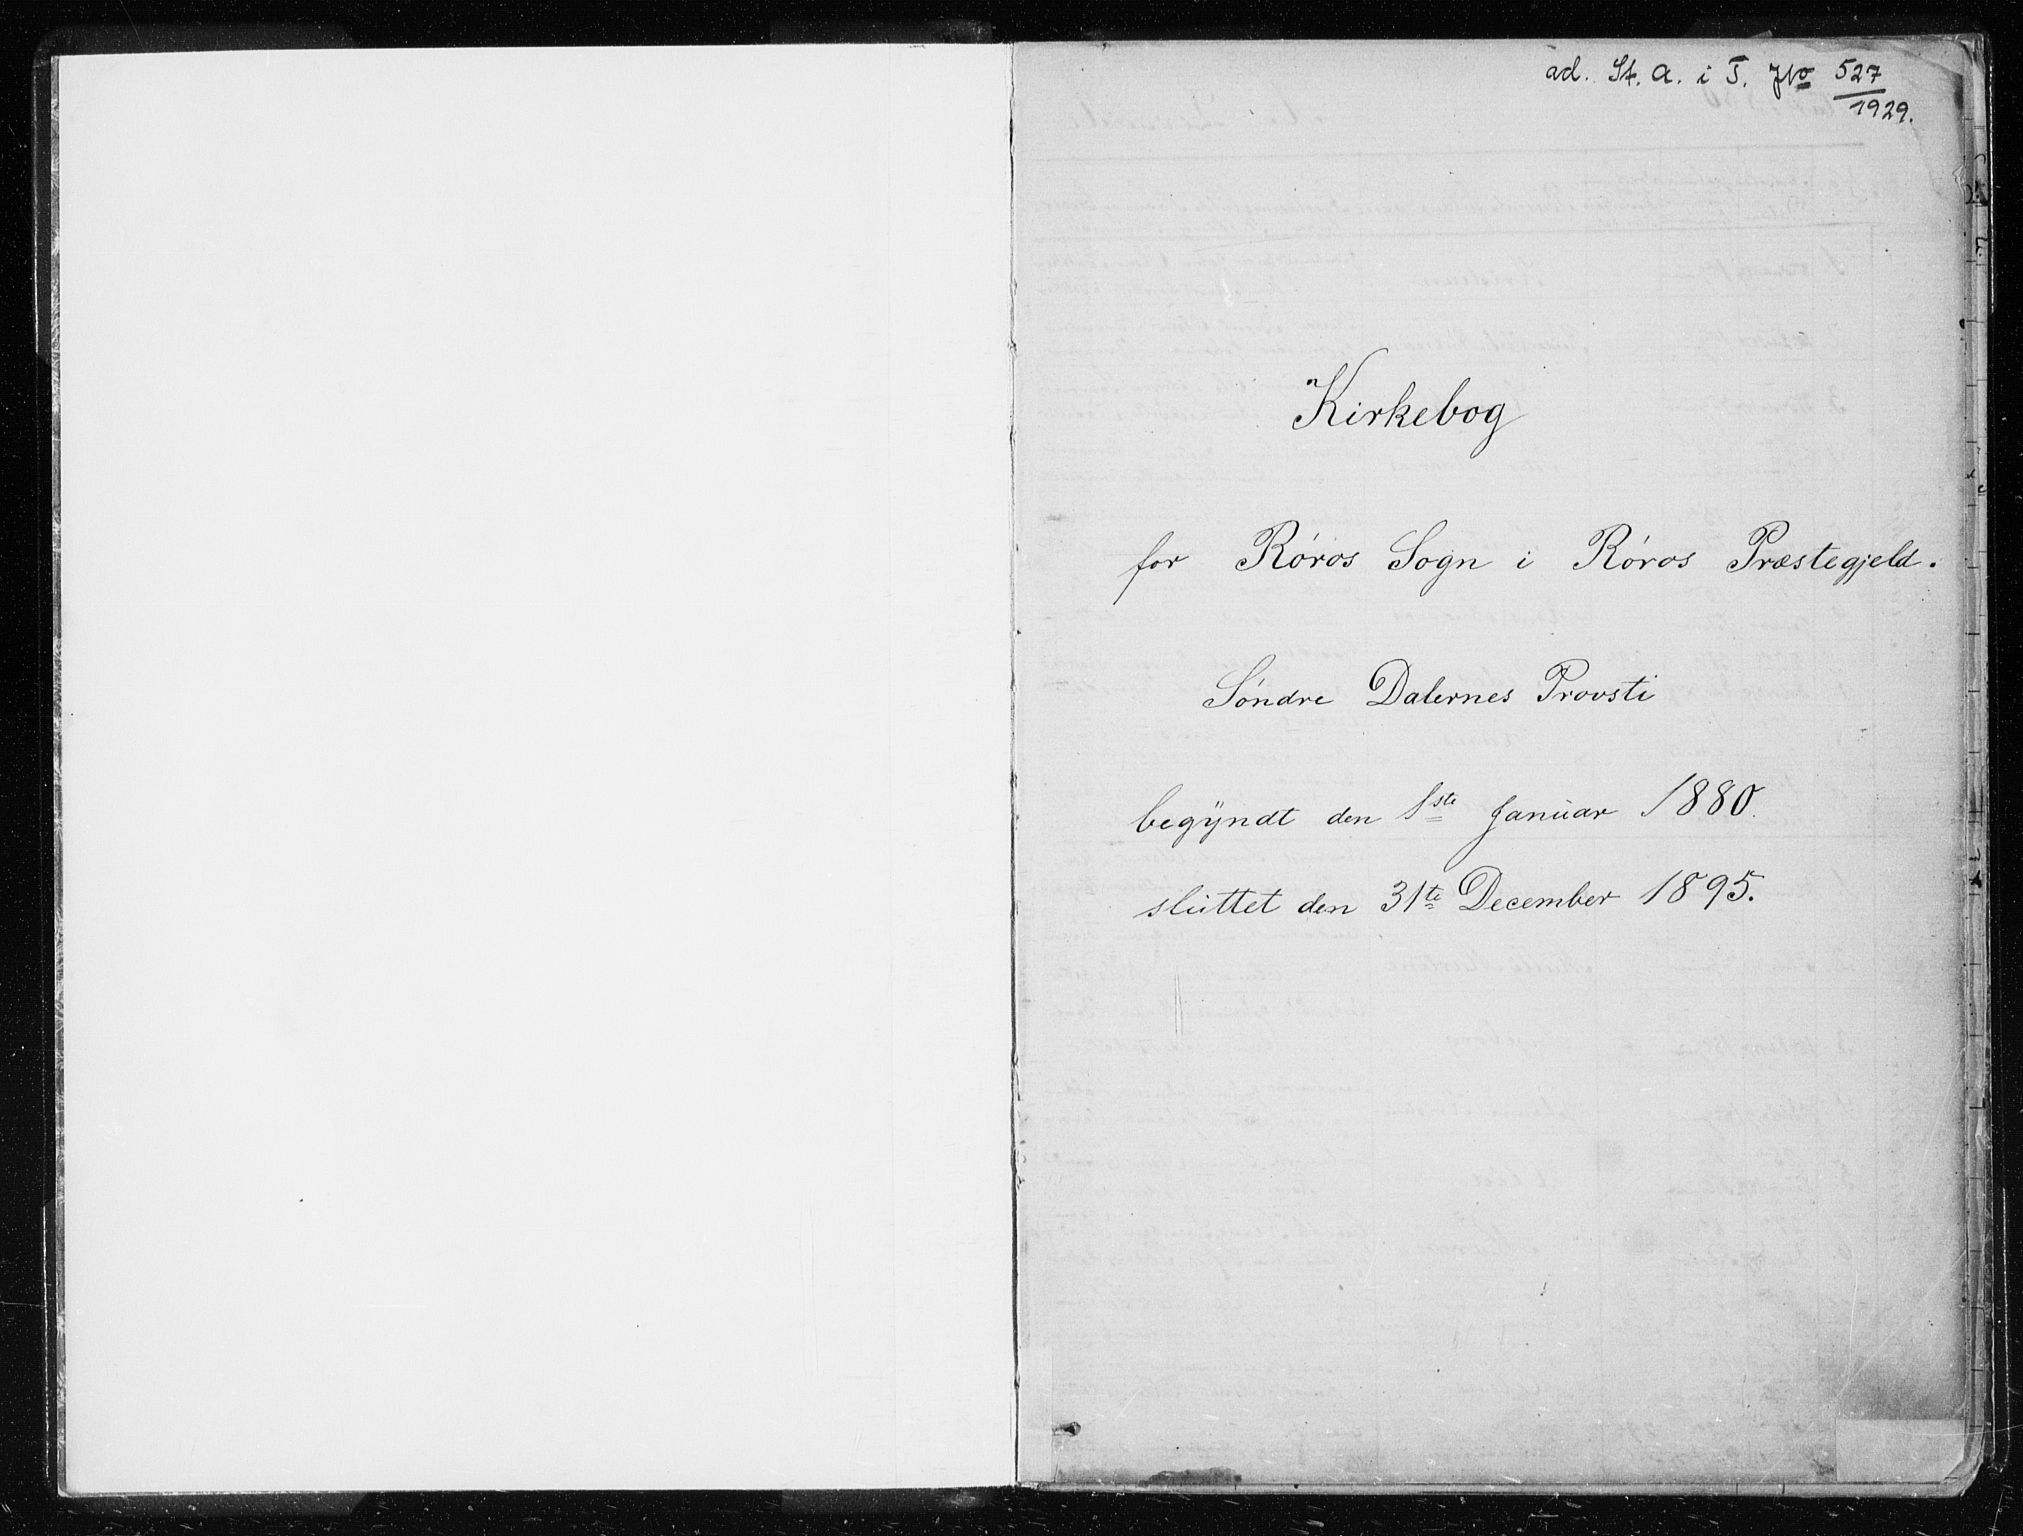 ad. St. A. i T. JNo 527/1929.
Kirkebog
for Røros Sogn i Røros Præstegjeld.
Søndre Dalernes Provsti
begyndt den 1ste Januar 1880.
sluttet den 31te December 1895.